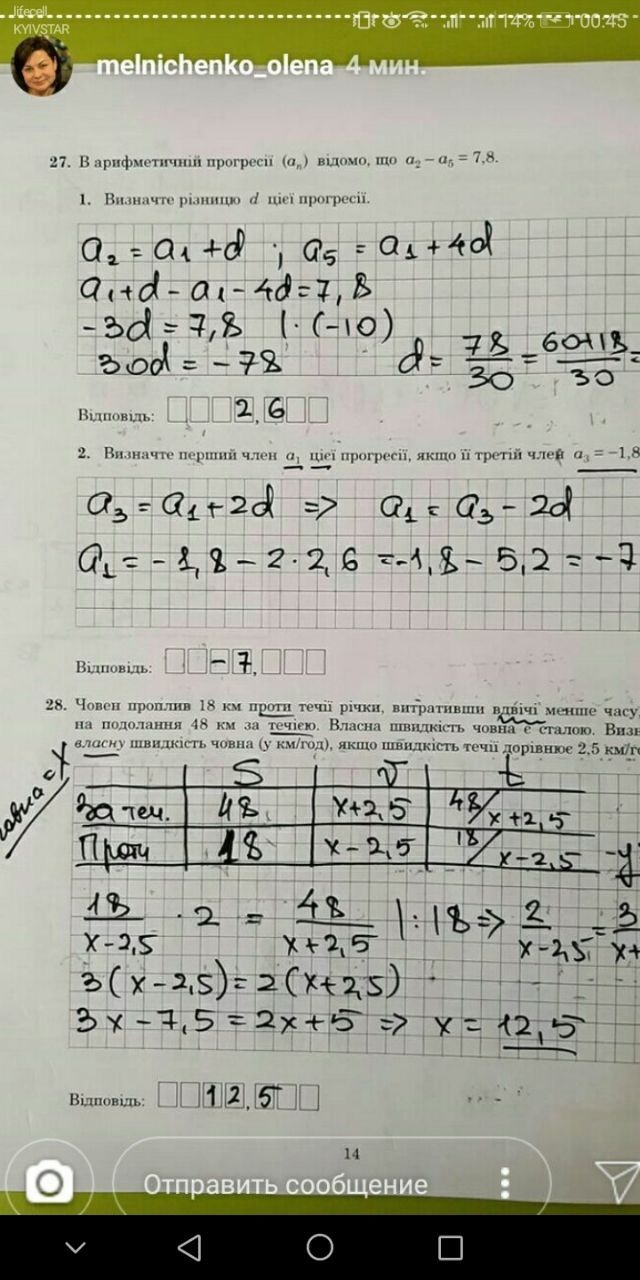 lifecell
KYIVSTAR
14% 00:45
melnichenko_olena 4 мин.
27. В арифметичній прогресії (aₙ) відомо, що a₂ − a₅ = 7,8.
1. Визначте різницю d цієї прогресії.
a₂ = a₁ + d ; a₅ = a₁ + 4d
a₁ + d − a₁ − 4d = 7,8
−3d = 7,8 | · (−10)
30d = −78 d = 78/30 = 60+18/30 =
Відповідь: 2,6
2. Визначте перший член a₁ цієї прогресії, якщо її третій член a₃ = −1,8
a₃ = a₁ + 2d => a₁ = a₃ − 2d
a₁ = −1,8 − 2 · 2,6 = −1,8 − 5,2 = −7
Відповідь: −7,
28. Човен проплив 18 км проти течії річки, витративши вдвічі менше часу,
на подолання 48 км за течією. Власна швидкість човна є сталою. Визн
власну швидкість човна (у км/год), якщо швидкість течії дорівнює 2,5 км/г
= x
S v t
За теч. 48 x+2,5 48/x+2,5
Проти 18 x−2,5 18/x−2,5 −у
18/x−2,5 · 2 = 48/x+2,5 | : 18 => 2/x−2,5 = 3/x+
3(x−2,5) = 2(x+2,5)
3x − 7,5 = 2x + 5 => x = 12,5
Відповідь: 12,5
14
Отправить сообщение